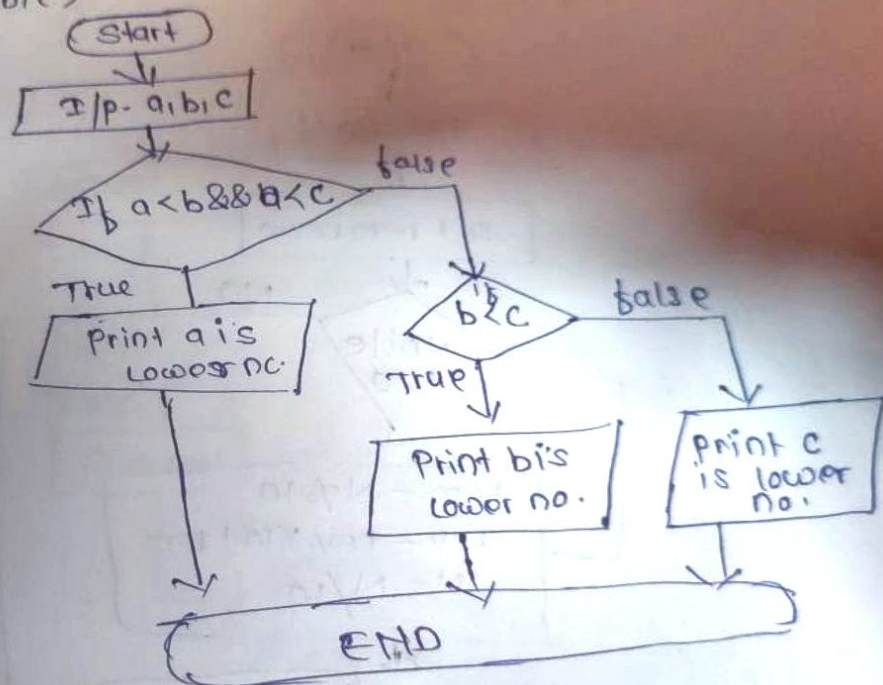 Start
I/p- a, b, c
If a<b&&a<c
false
True
Print a is
Lower no.
if
b<c
false
True
Print b is
Lower no.
Print c
is lower
no.
END